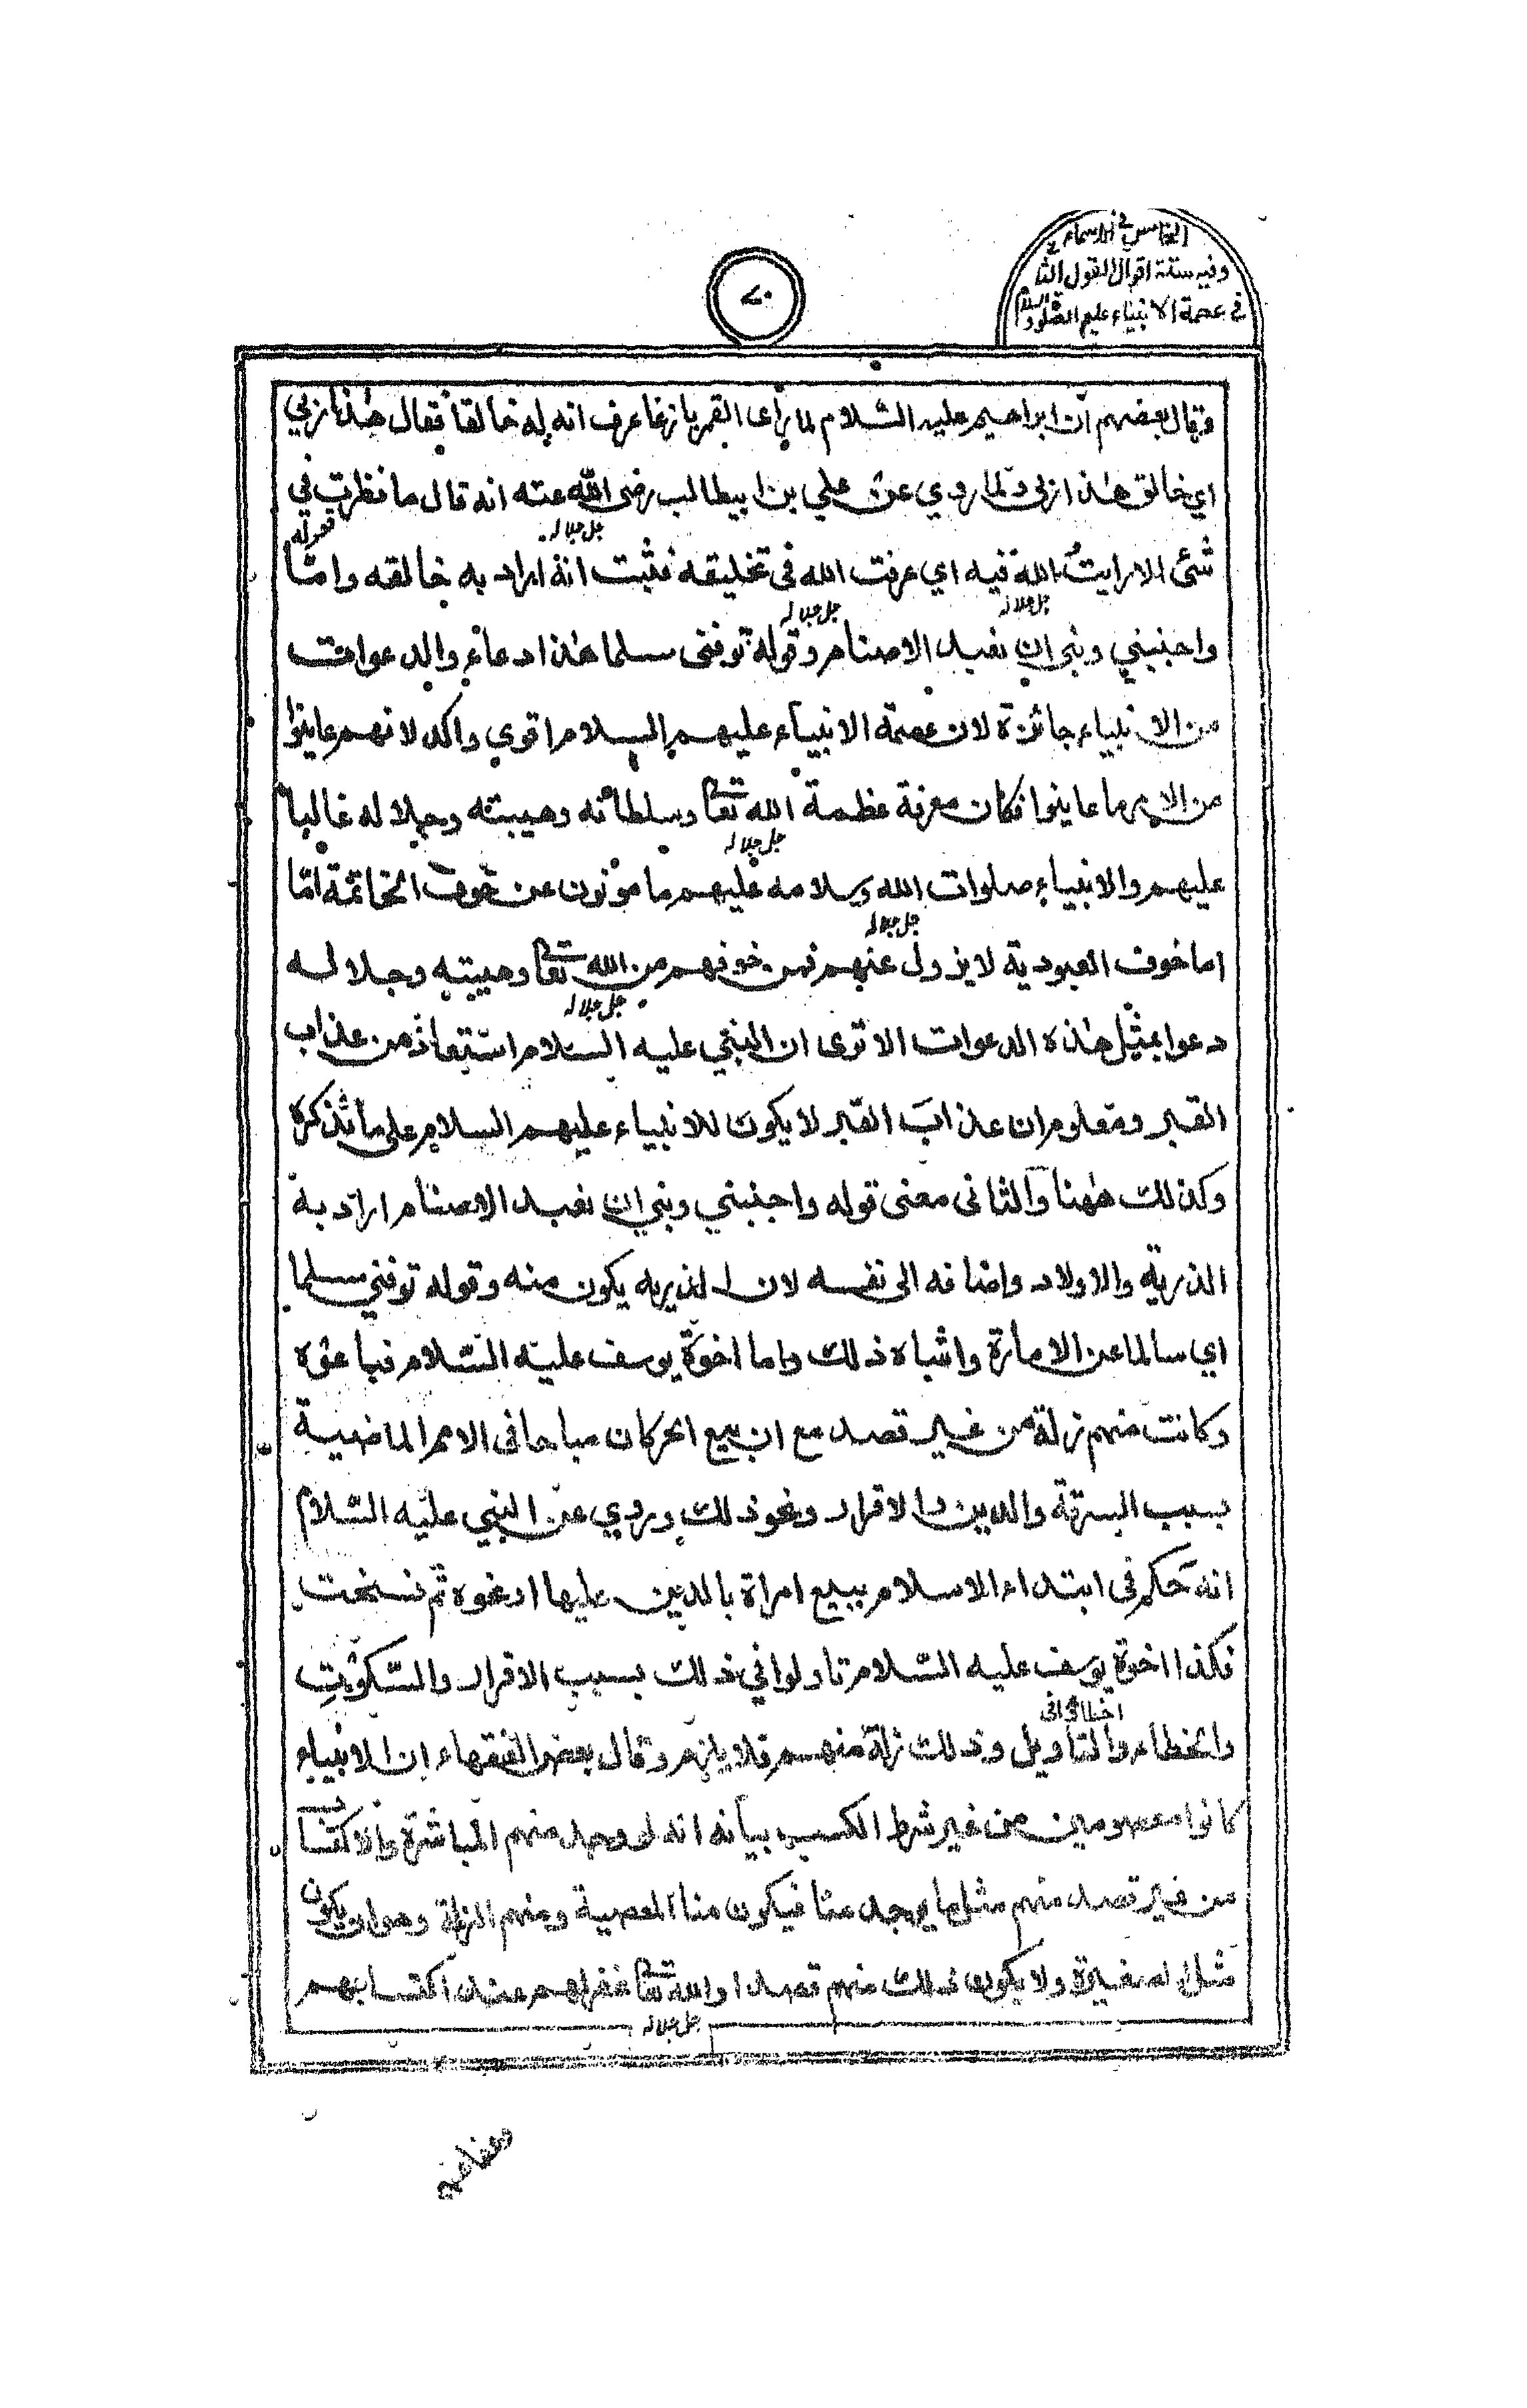 الخامس في الاسماء
وفيه ستة اقوال القول الثا
في عصمة الانبياء عليهم الصلوة والسلام
٧٠
وقال بعضهم ان ابراهيم عليه السلام لما رأى القمر بازغا عرف انه له خالقا فقال هذا ربي
اي خالق هذا ربي ولما روي عن علي بن ابيطالب رضى الله عنه انه قال ما نظرت في
جل جلاله
شئ الا رايت الله فيه اي عرفت الله فى تخليقه فثبت انه اراد به خالقه واما قوله
جل جلاله جل جلاله
واجنبني وبني ان نعبد الاصنام وقوله توفنى مسلما هذا دعاء والدعوات
من الانبياء جائزة لان عصمة الانبياء عليهم السلام اقوي واكد لانهم عاينوا
من الامر ما عاينوا فكان معرفة عظمة الله تعا وسلطانه وهيبته وجلاله غالبا
جل جلاله
عليهم والانبياء صلوات الله وسلامه عليهم مامونون عن خوف الخاتمة امّا
جل جلاله
اما خوف العبودية لا يزول عنهم فمن خوفهم من الله تعا وهيبته وجلاله
جل جلاله
دعوا بمثل هذه الدعوات الا ترى ان النبي عليه السلام استعاذ من عذاب
القبر ومعلوم ان عذاب القبر لا يكون للانبياء عليهم السلام على ما نذكره
وكذلك ههنا والثانى معنى قوله واجنبني وبني ان نعبد الاصنام اراد به
الذرية والاولاد واضافه الى نفسه لان الذريه يكون منه وقوله توفني مسلما
اي سالما عن الامارة واشباه ذلك واما اخوة يوسف عليه السلام فباعوه
وكانت منهم زلة من غير قصد مع ان بيع الحر كان مباحا فى الامم الماضية
بسبب السرقة والدين والاقرار ونحو ذلك وروي عن النبي عليه السلام
انه حكم فى ابتداء الاسلام ببيع امراة بالدين عليها او نحوه ثم نسخت
فكذا اخوة يوسف عليه السلام تاولوا في ذلك بسبب الاقرار والسكوت
اخطاؤا فى
والخطاء والتاويل وذلك زلة منهم فلا يلزم وقال بعض الفقهاء ان الانبياء
كانوا معصومين من غير شرط الكسب بيانه انه لو وجد منهم المباشرة والاكتساب
من غير قصد منهم مثل ما يوجد منا فيكون منا المعصية ومنهم الزلة وهو ان يكون
مثل الصغيرة ولا يكون ذلك منهم قصدا والله تعا غفر لهم عند اكتسابهم
جل جلاله